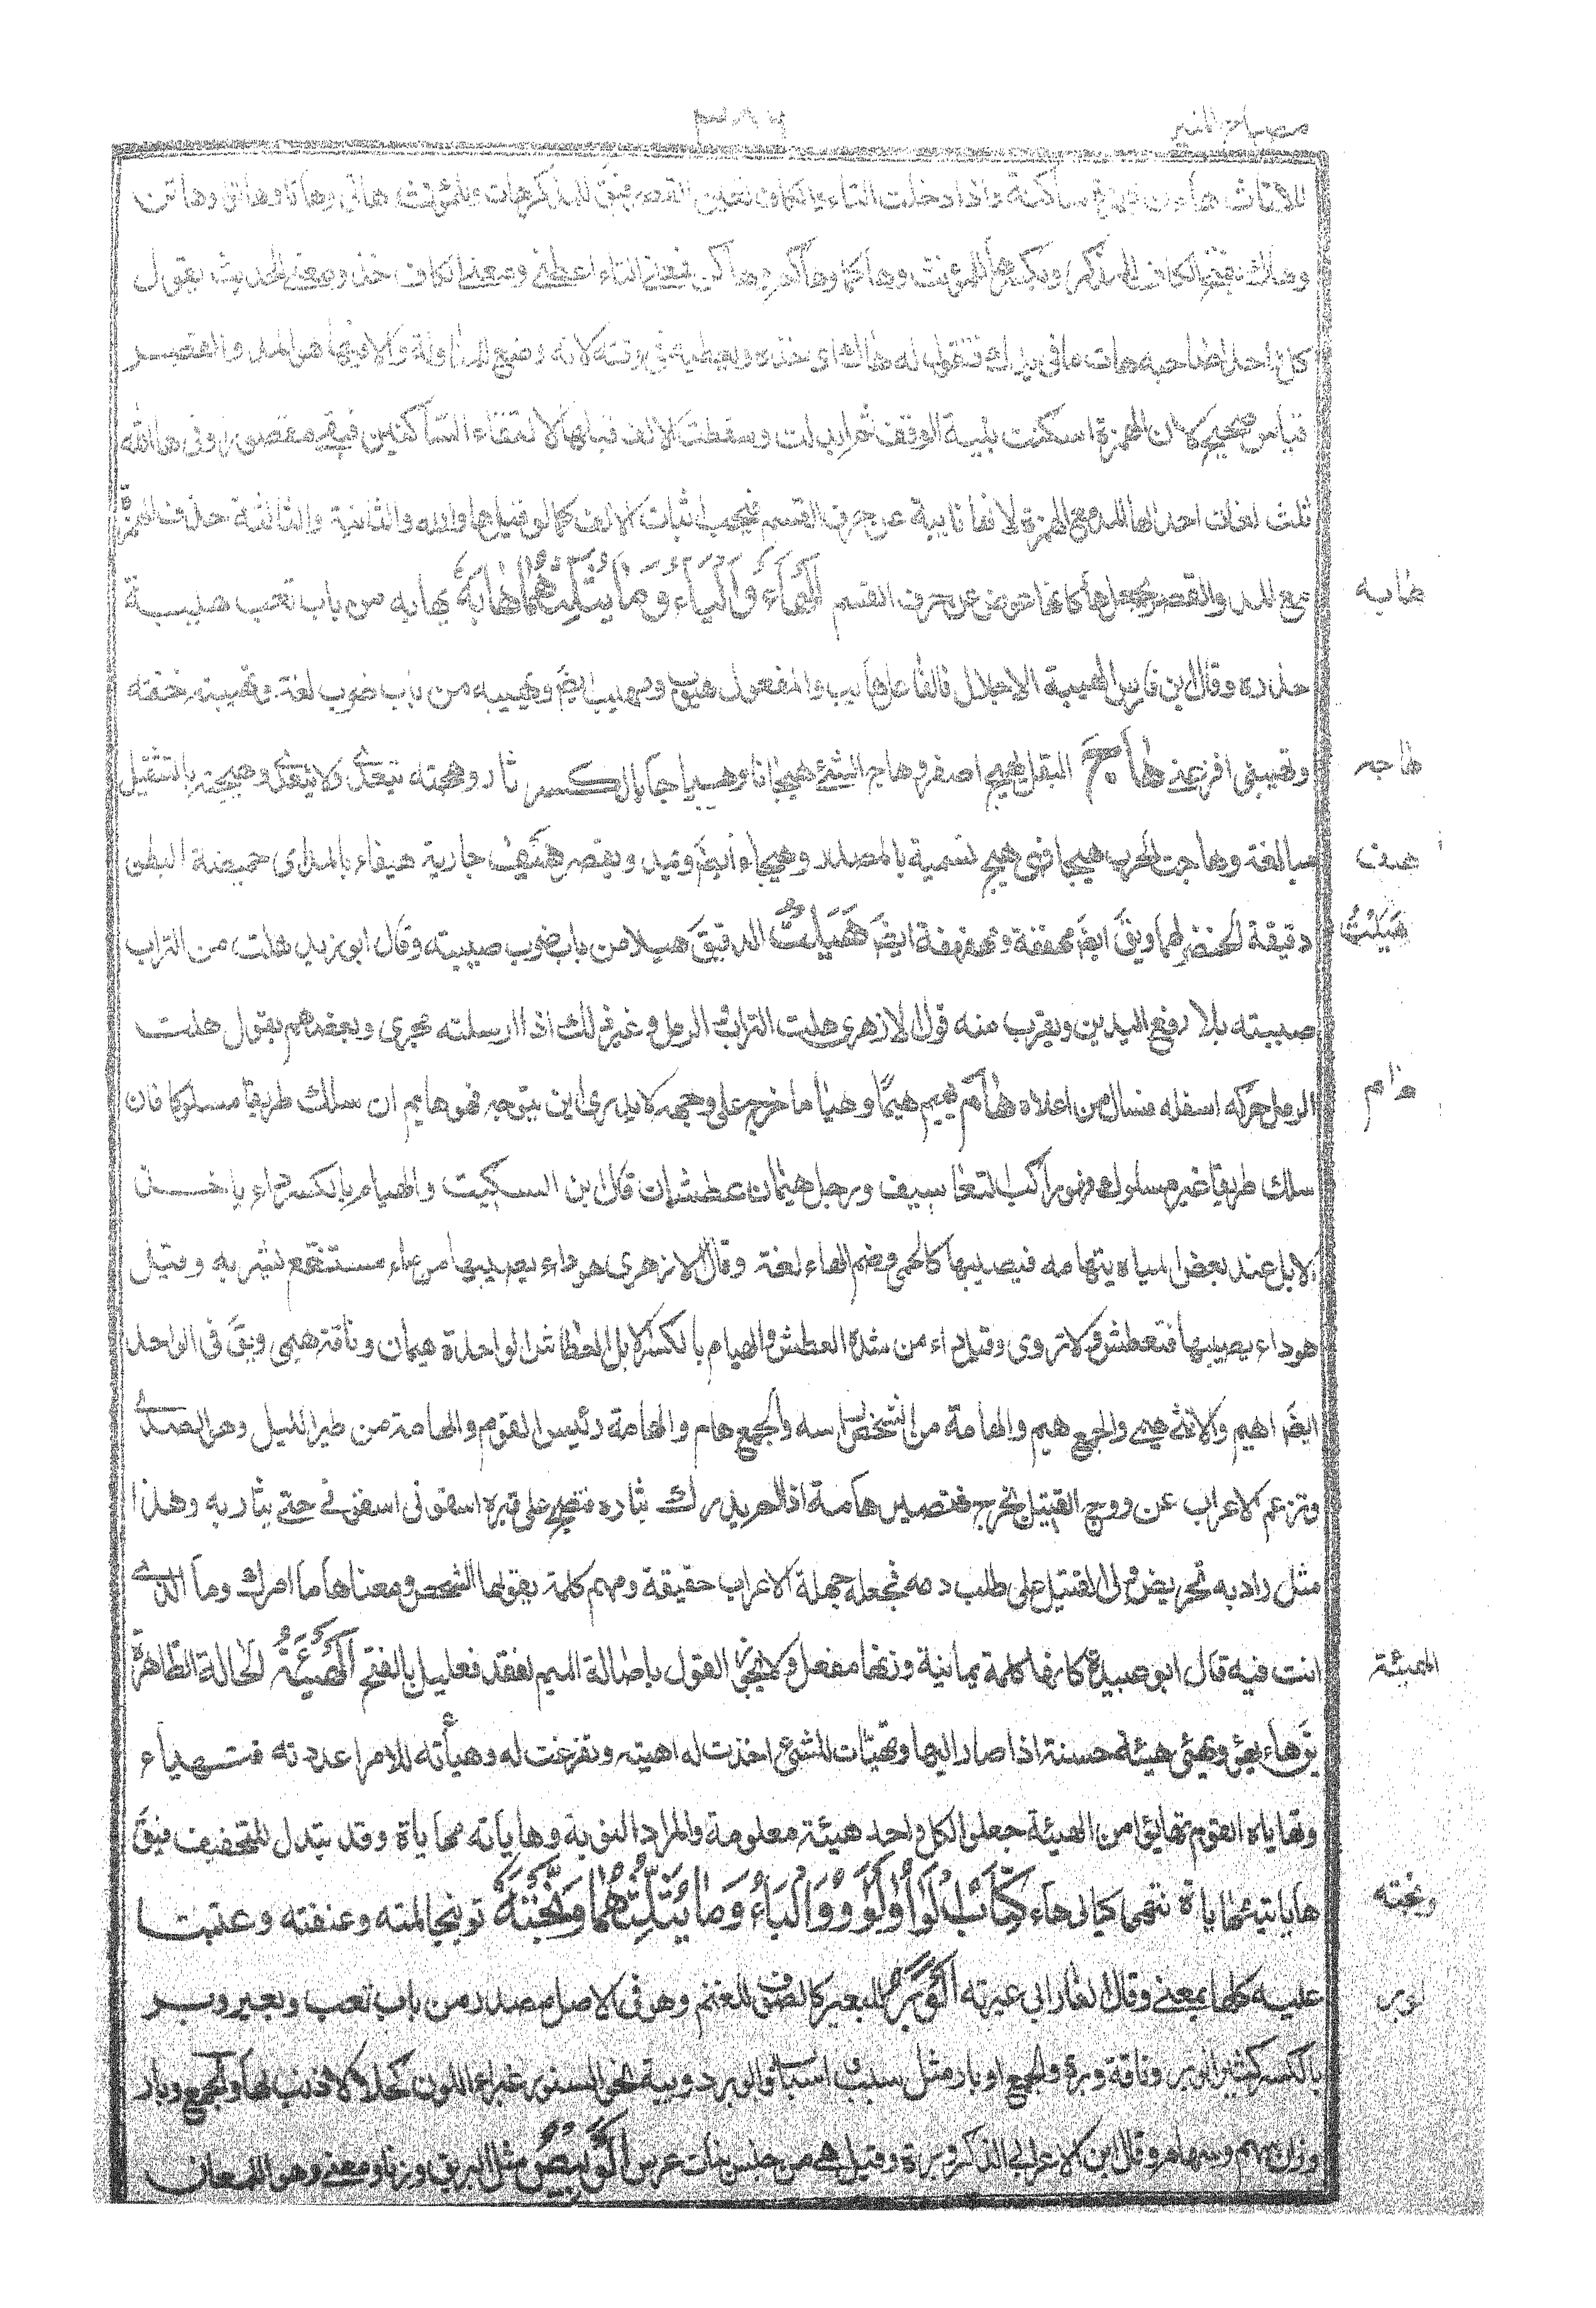 مصباح المنير
٣٨٢
للاناث هاءن بهمزة ساكنة واذا دخلت التاء يا الكاف تعين القصر فيق للمذكر هات وللمؤنث هاتى وهاتا وهاتوا وهاتن
وهاك بفتح الكاف للمذكر وبكسرها للمؤنث وهاكما وهاكم وهاكن فمعنى التاء اعطنى ومعنى الكاف خذ ومعنى الحديث يقول
كل واحد لصاحبه هات ما فى يدك فتقول له هاك او خذه ويعطيه فى وقته لانه وضع للمناولة والاوفيها هو المد والقصر
قياس صحيح لان الهمزة اسكنت بنية الوقف ثم ابدلت وسقطت الالف قبلها لالتقاء الساكنين فبقى مقصورا وفى ها الله
ثلث لغات احداها المد مع الهمزة لانها نايبة عن حرف القسم فيجب اثبات الالف كما لو قيل ها والله والثانية والثالثة حذف الهمزة
مع المد والقصر يجعل ها كانها عوض عن حرف القسم الهاء والياء وما يثلثهما هابه يهابه من باب تعب هيبة
هابه
حذره وقال ابن فارس الهيبة الاجلال فالفاعل هايب والمفعول هيوب ومهيب ايض ويهيبه من باب ضرب لغة وتهيبته خفته
وتهيبنى افزعنى هاج البقل يهيج اصفر وهاج الشئ هيجانا وهياجا بالكسر ثار وهجته يتعدى ولا يتعدى وهيجته بالتثقيل
هاجه
مبالغة وهاجت الحرب هيجا فهى هيج تسمية بالمصدر وهيجاء ايض وتمد ويقصر هيف جارية هيفاء بالمد اى خميصة البطن
هيف
دقيقة الخصر لها ويق ايض مهففة ومهفهفة ايض هيلت الدقيق هيلا من باب ضرب صببته وقال ابو زيد هلت من التراب
هيلت
صببته بلا رفع اليدين ويقرب منه قول الازهرى هلت التراب والرمل وغير ذلك اذا ارسلته فجرى وبعضهم يقول هلت
الرمل حركه اسفله فسال من اعلاه هام يهيم هيما وهياما خرج على وجهه لا يدرى اين يتوجه فهو هايم ان سلك طريقا مسلوكا فان
هام
سلك طريقا غير مسلوك فهو راكب التعاسيف ورجل هيمان عطشان قال ابن السكيت والهيام بالكسر داء ياخذ
الابل عند بعض المياه بتهامه فيصيبها كالحمى وضم الهاء لغة وقال الازهرى هو داء يصيبها من ماء مستنقع تشربه وقيل
هو داء يصيبها فتعطش ولا تروى وقيل داء من شدة العطش والهيام بالكسر الابل العطاش الواحدة هيمان وناقة هيمى ويق فى الواحد
ايض اهيم والانثى هيمى والجمع هيم والهامة من الشخص راسه والجمع هام والهامة رئيس القوم والهامة من طير الليل وهو الصدى
وتزعم الاعراب عن روح القتيل تخرج فتصير هامة اذا لم يدرك بثاره فتصيح على قبره اسقونى اسقونى حتى يثار به وهذا
مثل يراد به تحريض ولى القتيل على طلب دمه فجعله جهلة الاعراب حقيقة ومهيم كلمة يقولها الشخص ومعناها ما امرك وما الذى
انت فيه قال ابو عبيدة كانها كلمة يمانية وزنها مفعل ولا يجوز القول باصالة الميم لفقد فعليل بالفتح الهيئة الحالة الظاهرة
الهيئة
يق هاء يهئ ويهئى هيئة حسنة اذا صار اليها وتهيأت للشئ اخذت له اهبته وتفرغت له وهيأته للامر اعددته فتهياء
وتهاياه القوم تهايؤا من الهيئة جعلوا لكل واحد هيئة معلومة والمراد النوبة وهاياته مهاياة وقد يبدل للتخفيف فيق
هاياتية مهاياة انتهى كتابى هاء كتاب الواو الواو والباء وما يثلثهما وبخته توبيخا لمته وعنفته وعتبت
وبخته
عليه كلها بمعنى وقال الفارابى عيرته الوبر للبعير كالصوف للغنم وهو فى الاصل مصدر من باب تعب وبعير وبر
الوبر
بالكسر كثير الوبر وناقة وبرة والجمع اوبار مثل سبب اسباب والوبر دويبة نحو السنور غبراء اللون كحلاء لا ذنب لها والجمع وبار
وزان سهم وسهام وقال ابن الاعرابى الذكر وبر وبرة وقيل هى من جنس بنات عرس الوبيص مثل البريق وزنا ومعنى وهو اللمعان